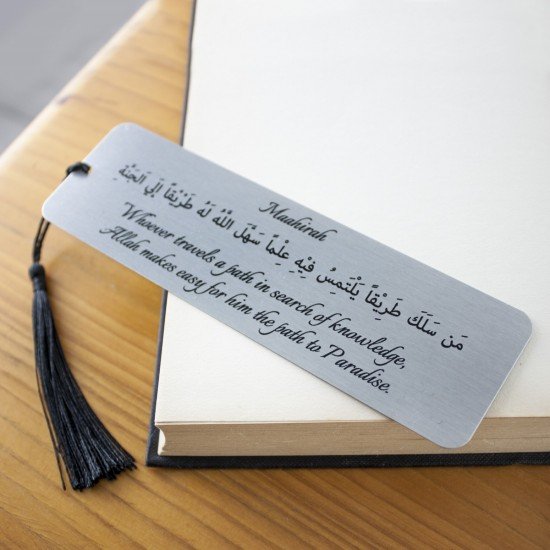 Maahirah
مَن سَلَكَ طَرِيْقاً يَلْتَمِسُ فِيْهِ عِلْماً سَهَّلَ اللَّهُ لَهُ طَرِيْقاً إِلَي الْجَنَّةُ
Whoever travels a path in search of knowledge,
Allah makes easy for him the path to Paradise.